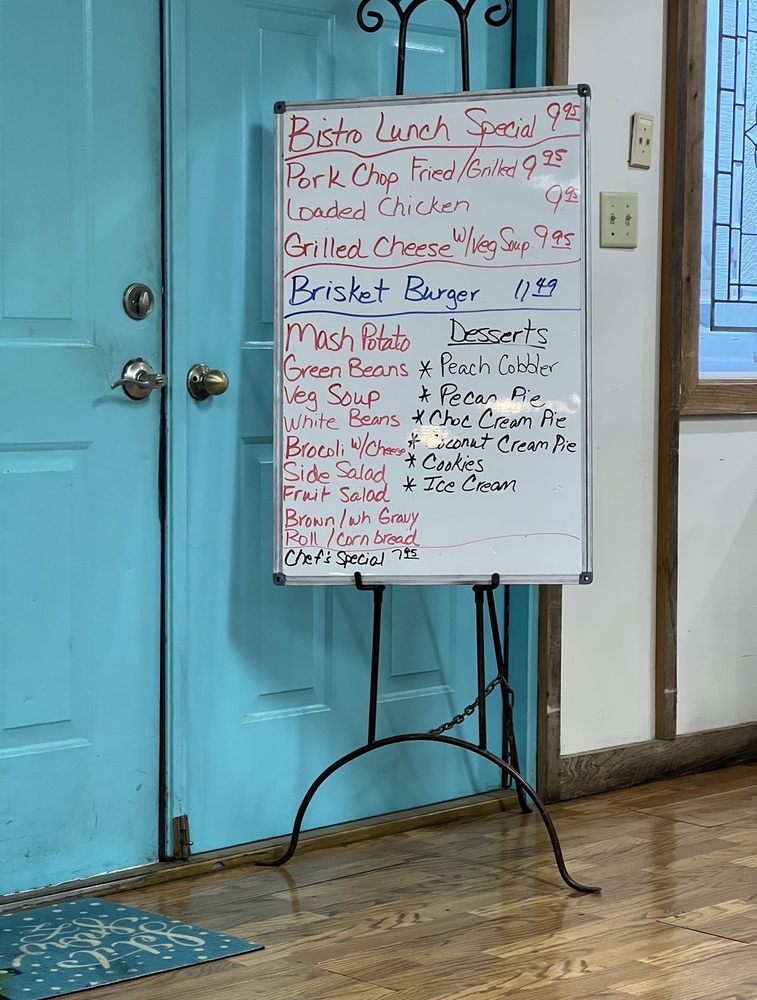 Bistro Lunch Special 9 95
Pork Chop Fried/Grilled 9 95
Loaded Chicken 9 95
Grilled Cheese W/Veg Soup 9 95
Brisket Burger 11 49
Mash Potato
Green Beans
Veg Soup
White Beans
Brocoli W/Cheese
Side Salad
Fruit Salad
Brown/wh Gravy
Roll/corn bread
Chef's Special 7 95
Desserts
* Peach Cobbler
* Pecan Pie
* Choc Cream Pie
* Coconut Cream Pie
* Cookies
* Ice Cream
Let it
Snow